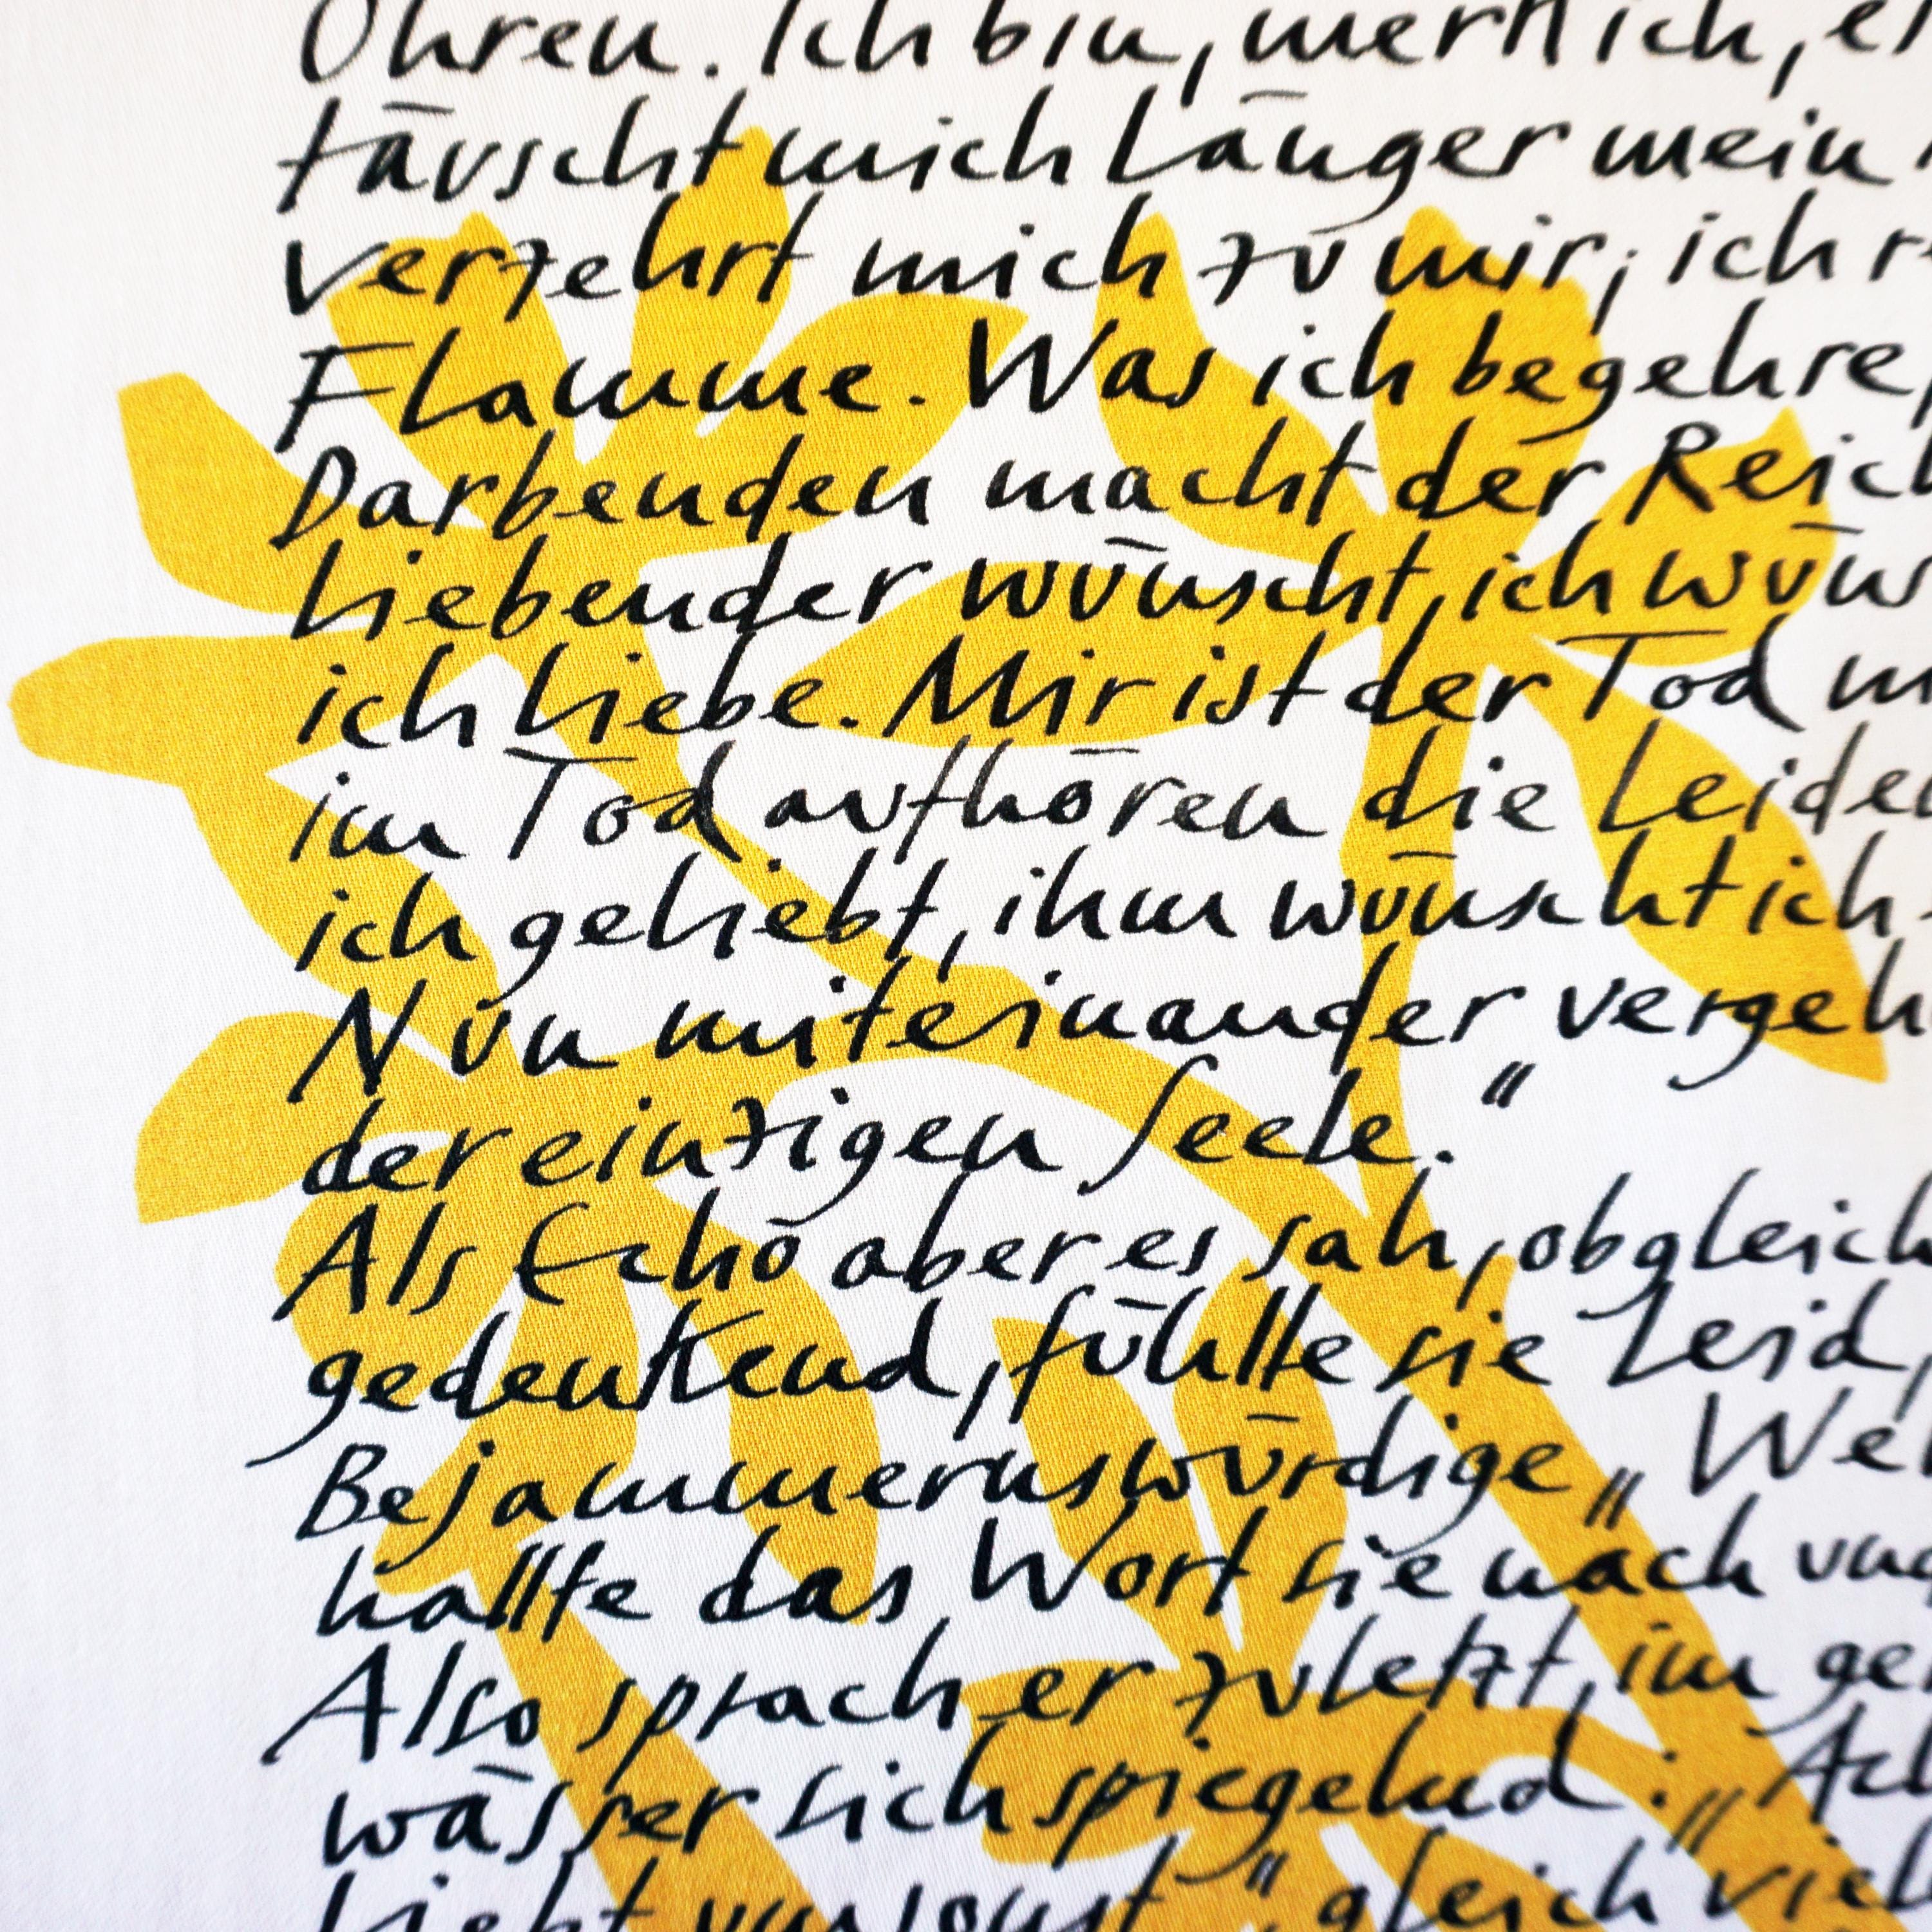 Ohren. Ich bin, merk ich, er
täuscht mich länger mein
verzehrt mich zu mir, ich
Flamme. Was ich begehre,
Darbenden macht der Reich
Liebender wünscht, ich wüns
ich liebe. Mir ist der Tod
im Tod aufhören die Leiden
ich geliebt, ihm wünscht ich
Nun miteinander vergeh
der einzigen Seele."
Als Echo aber es sah, obgleich
gedenkend, fühlte sie Leid,
Bejammernswürdige „Weh
hallte das Wort sie nach und
Also sprach er zuletzt, im ge
wässer sich spiegelnd: „Ach
liebt umsonst", gleich viel